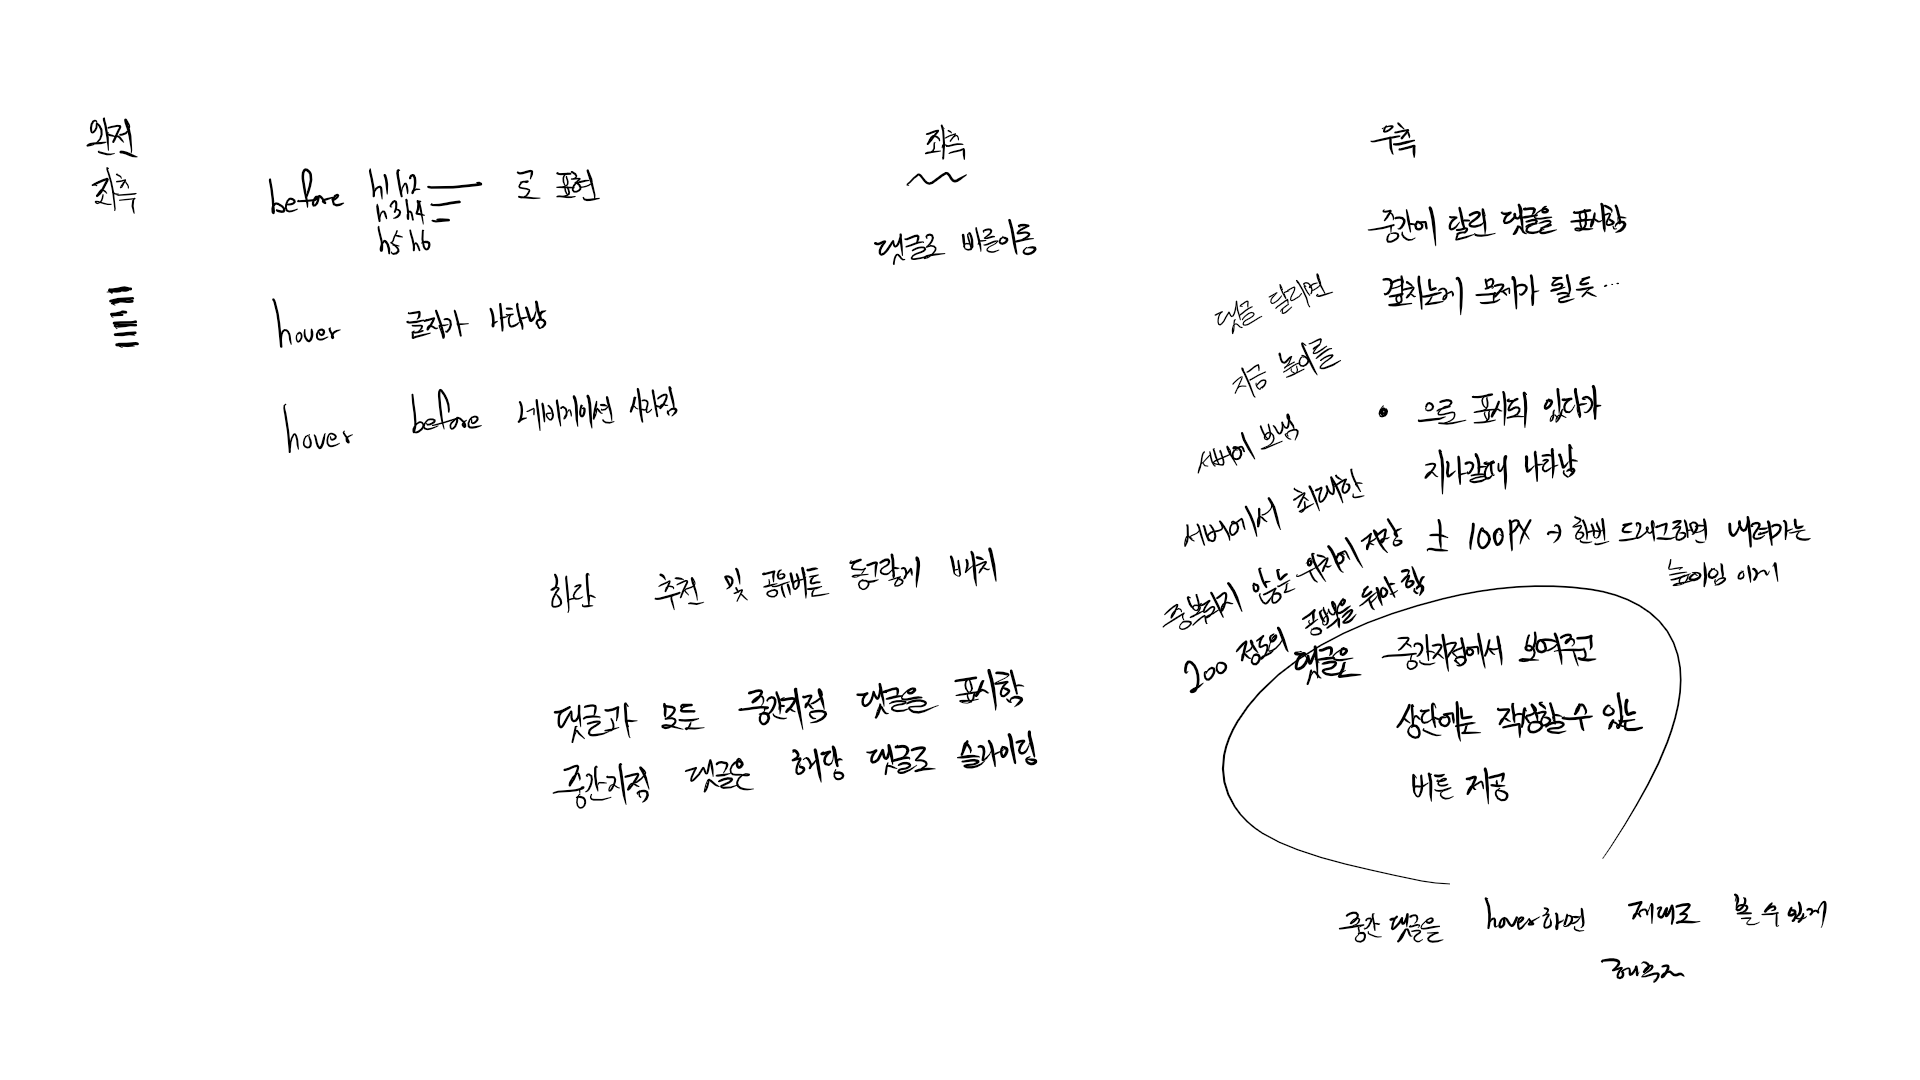 완전
좌측
before h1 h2 로 표현
h3 h4
h5 h6
hover 글자가 나타남
hover before 네비게이션 사라짐
좌측
댓글로 빠른이동
하단 추천 및 공유버튼 동그랗게 배치
댓글과 모든 중간지점 댓글을 표시함
중간지점 댓글은 해당 댓글로 슬라이딩
우측
중간에 달린 댓글을 표시함
겹치는게 문제가 될 듯...
• 으로 표시되 있다가
지나갈때 나타남
± 100PX → 한번 드래그하면 내려가는
높이임 이게
댓글 달리면
지금 높이를
서버에 보냄
서버에서 최대한
중복되지 않는 위치에 저장
200 정도의 공백을 둬야 함
댓글은 중간지점에서 보여주고
상단에는 작성할 수 있는
버튼 제공
중간 댓글을 hover하면 제대로 볼 수 있게
해주자